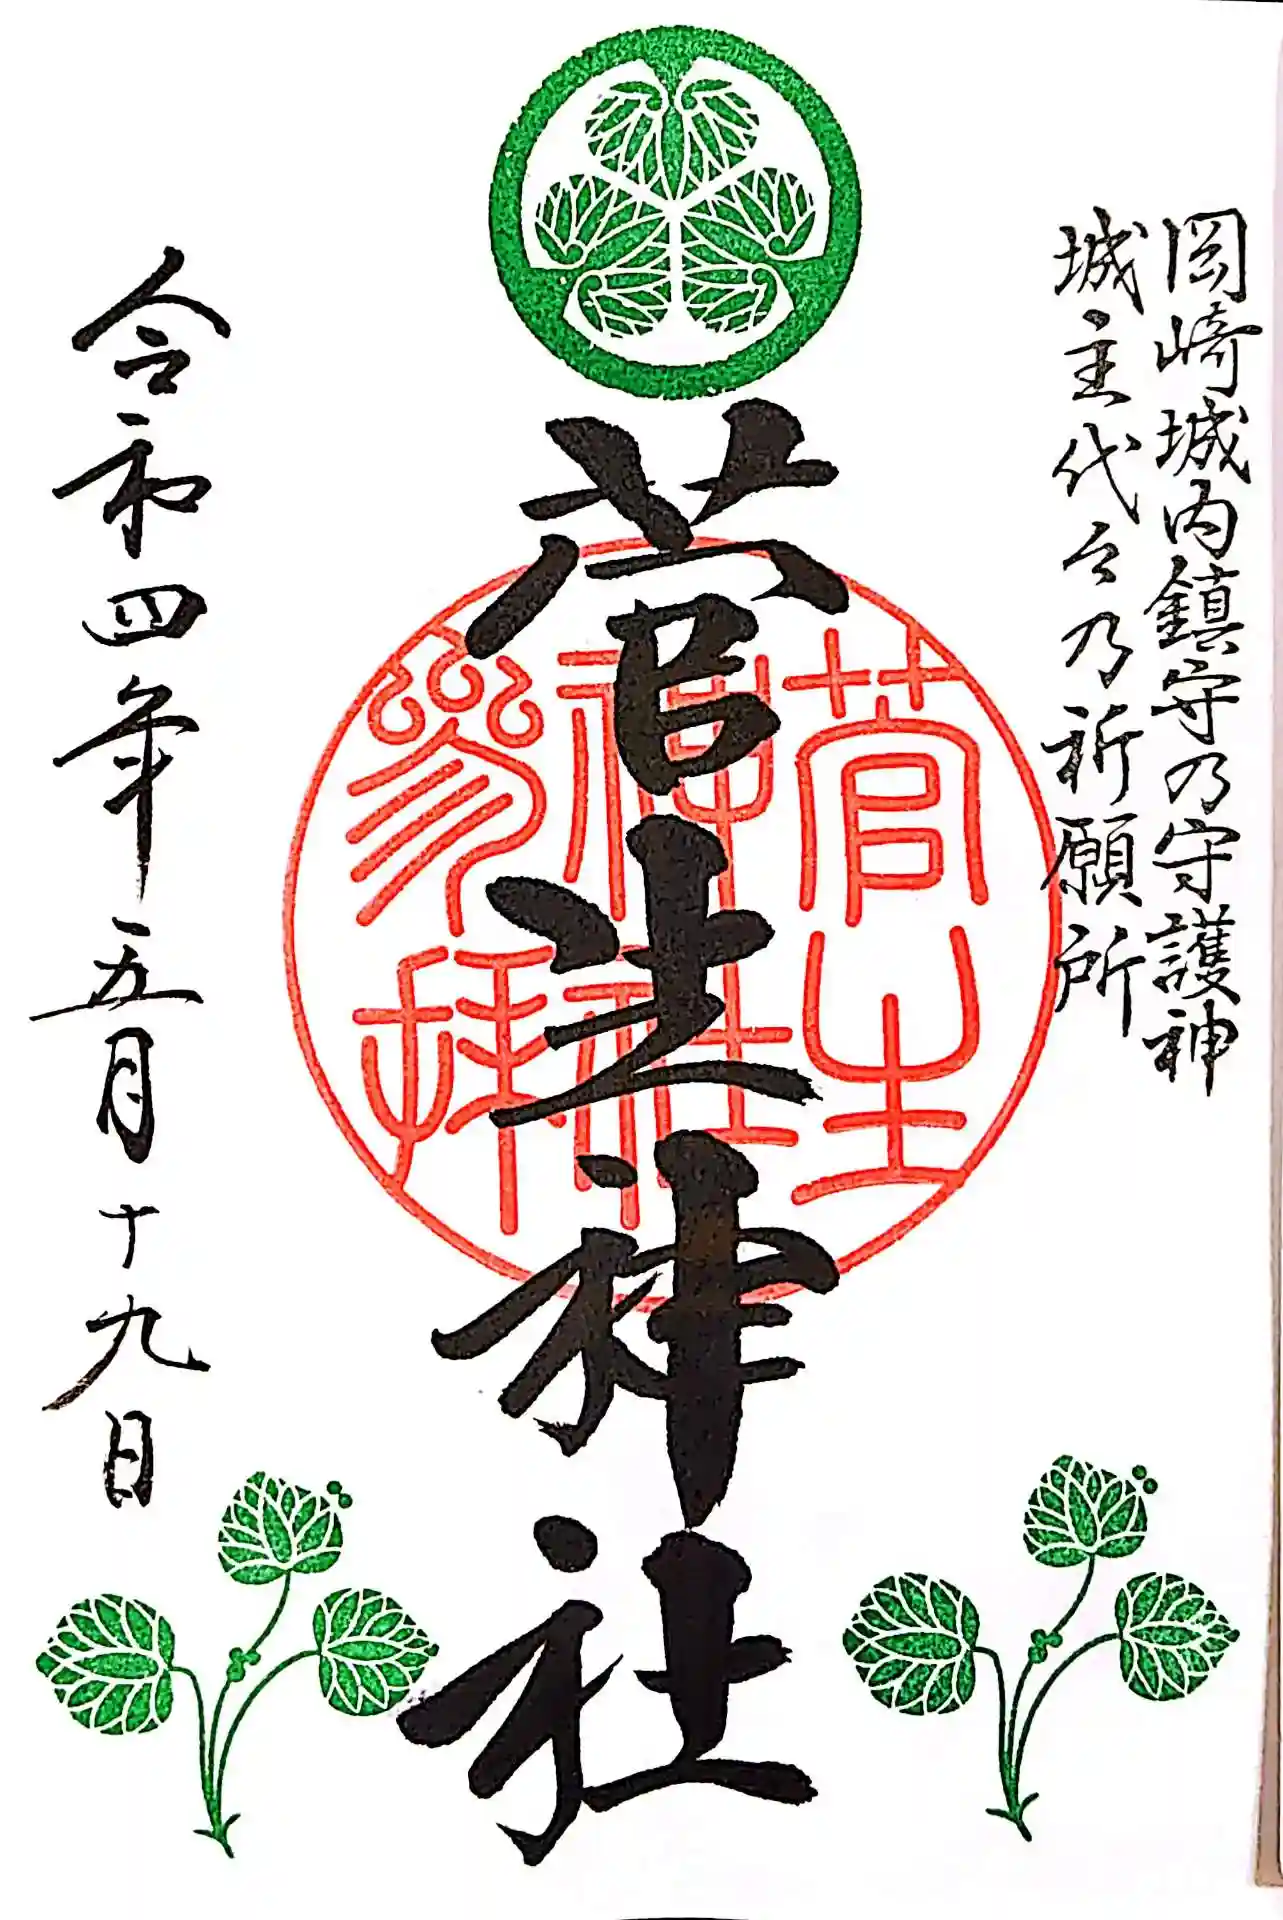 岡崎城内鎮守乃守護神
城主代々乃祈願所
菅生神社
菅生
神社
參拝
令和四年五月十九日